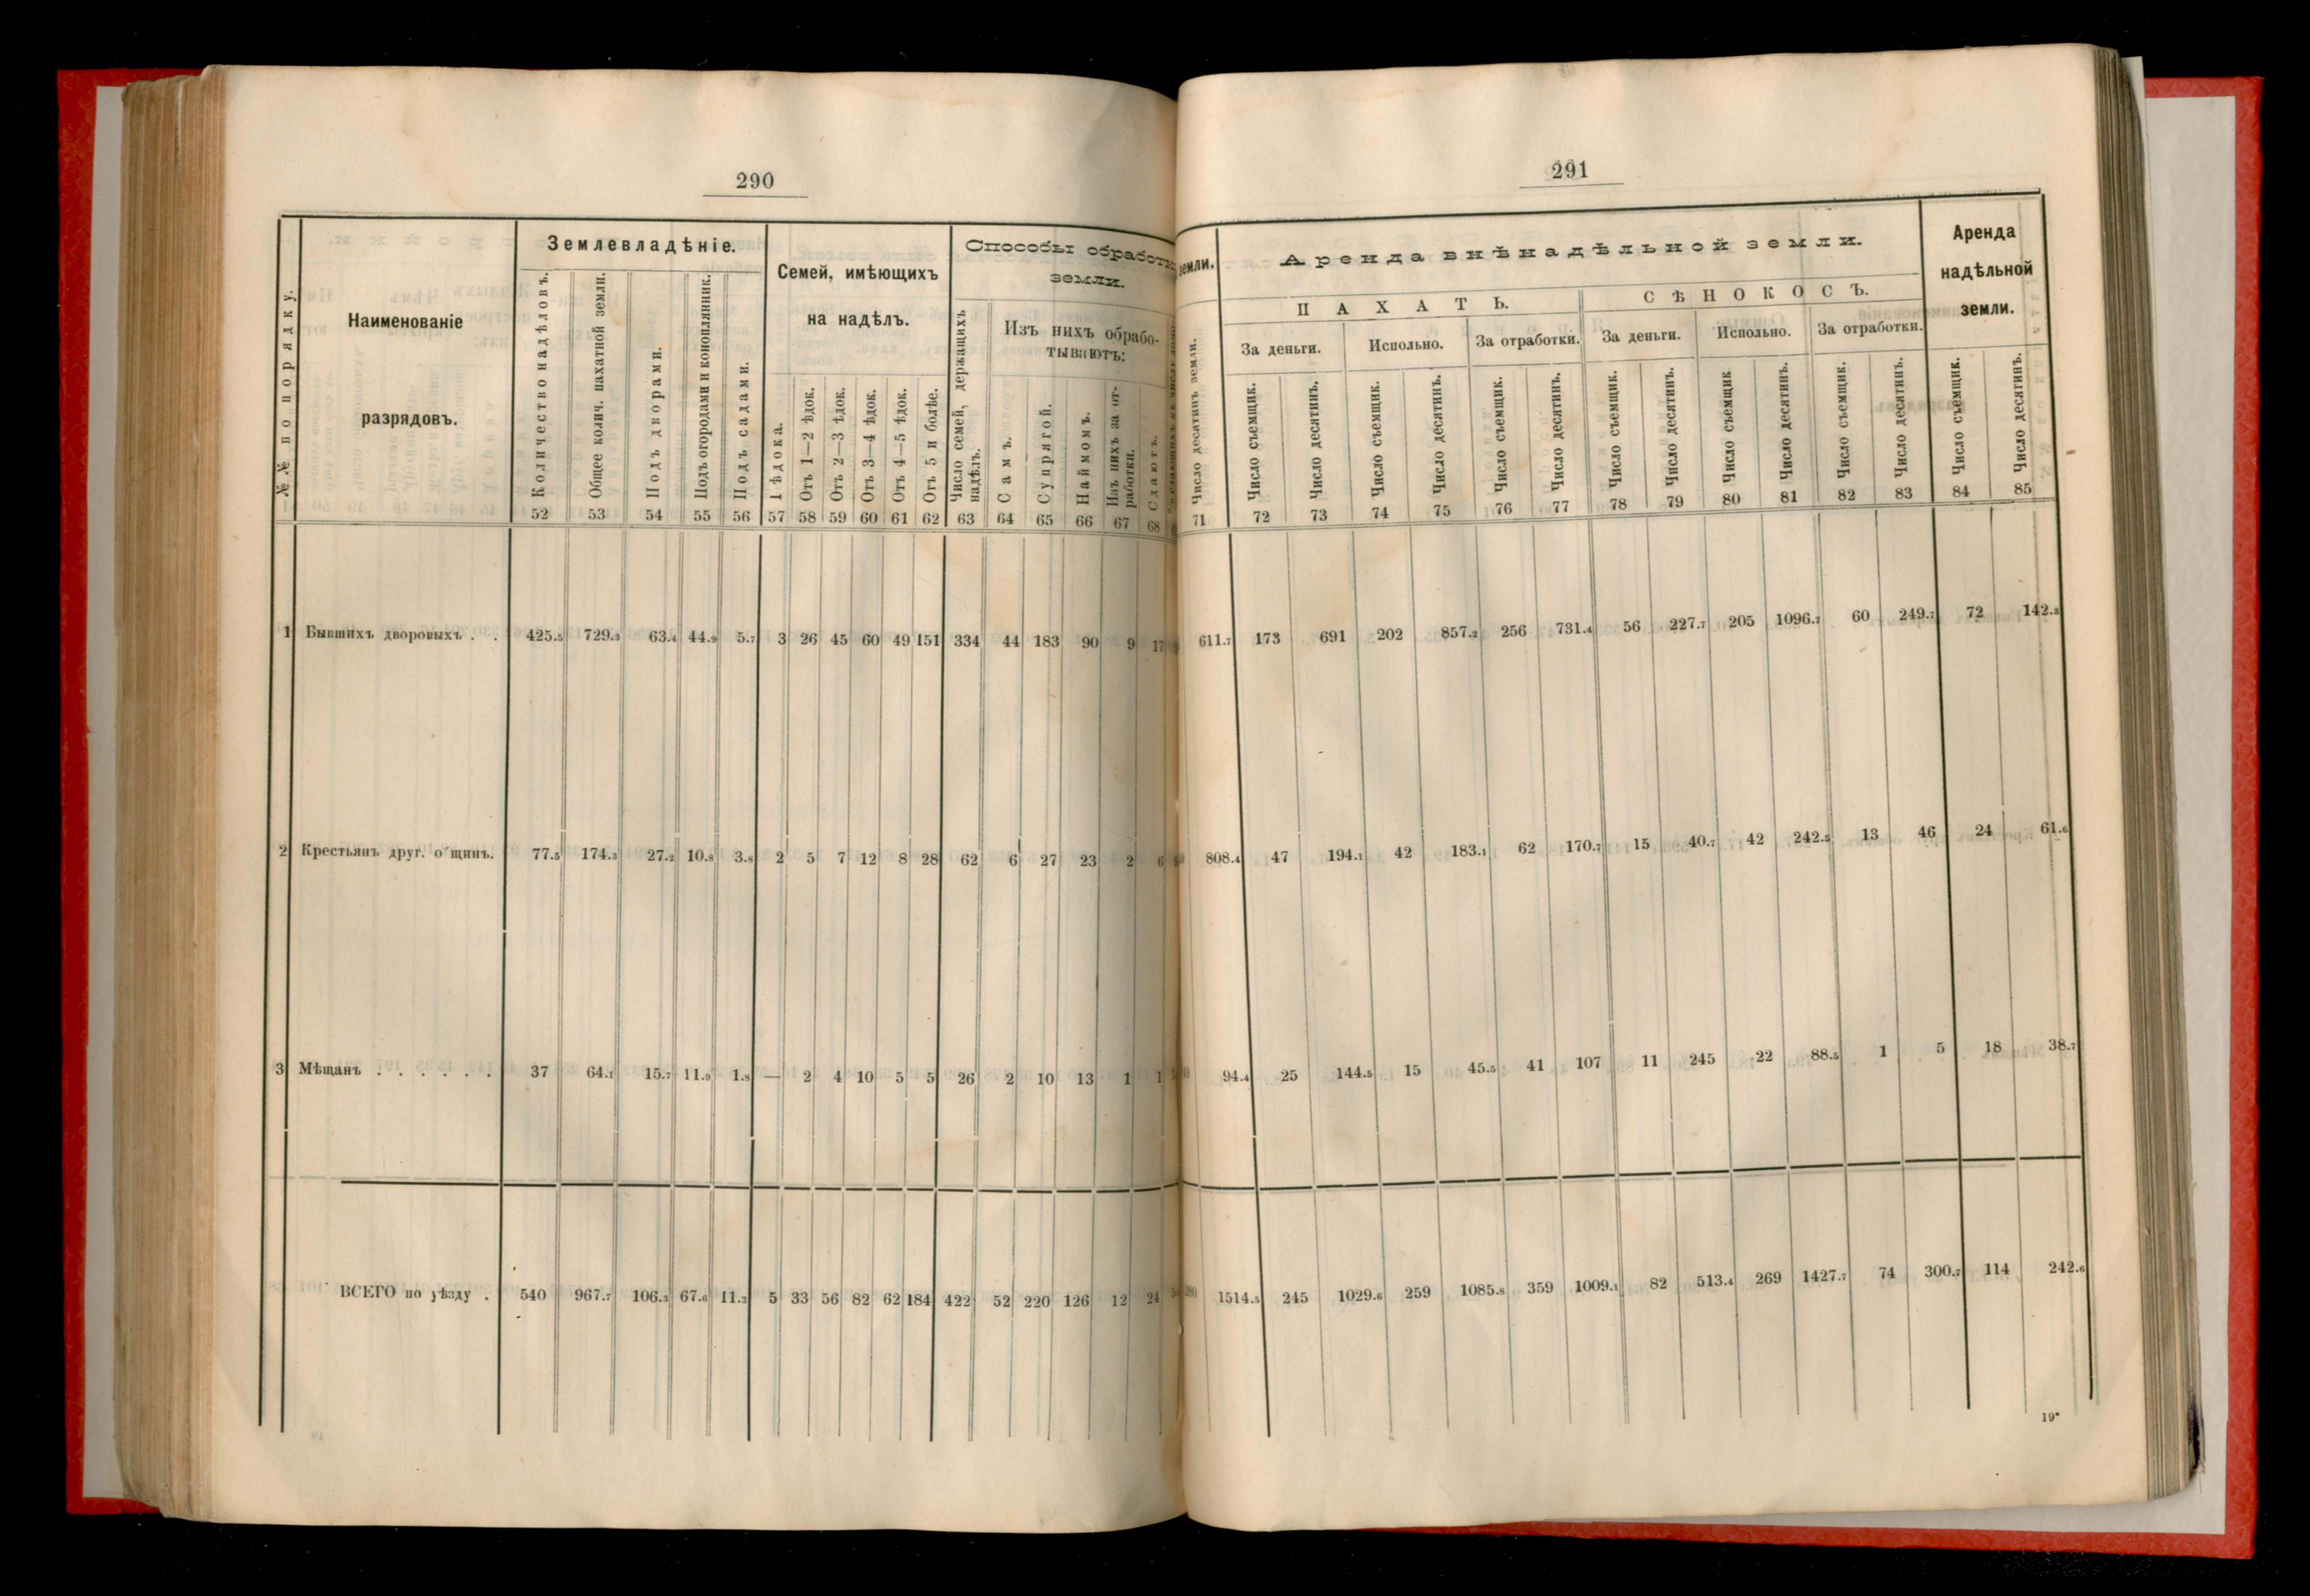 290
Землевладѣніе.
Семей, имѣющихъ
на надѣлъ.
Способы обработки
земли.
Изъ нихъ обрабо-
тываютъ:
№№ по порядку.
Наименованіе
разрядовъ.
Количество надѣловъ.
Общее колич. пахатной земли.
Подъ дворами.
Подъ огородами и конопляник.
Подъ садами.
1 ѣдока.
Отъ 1—2 ѣдок.
Отъ 2—3 ѣдок.
Отъ 3—4 ѣдок.
Отъ 4—5 ѣдок.
Отъ 5 и болѣе.
Число семей, держащихъ
надѣлъ.
Самъ.
Супрягой.
Наймомъ.
Изъ нихъ за от-
работки.
Сдаютъ.
52 53 54 55 56 57 58 59 60 61 62 63 64 65 66 67 68
1 Бывшихъ дворовыхъ . . 425.5 729.3 63.4 44.9 5.7 3 26 45 60 49 151 334 44 183 90 9 17
2 Крестьянъ друг. о щинъ. 77.5 174.3 27.2 10.8 3.8 2 5 7 12 8 28 62 6 27 23 2 6
3 Мѣщанъ . . . . . . 37 64.1 15.7 11.9 1.8 — 2 4 10 5 5 26 2 10 13 1 1
ВСЕГО по уѣзду . 540 967.7 106.3 67.6 11.3 5 33 56 82 62 184 422 52 220 126 12 24
291
земли.
Аренда внѣнадѣльной земли.
Аренда
надѣльной
земли.
ПАХАТЬ.
СѢНОКОСЪ.
За деньги.
Испольно.
За отработки.
За деньги.
Испольно.
За отработки.
Число десятинъ земли.
Число съемщик.
Число десятинъ.
Число съемщик.
Число десятинъ.
Число съемщик.
Число десятинъ.
Число съемщик.
Число десятинъ.
Число съемщик
Число десятинъ.
Число съемщик.
Число десятинъ.
Число съемщик.
Число десятинъ.
71 72 73 74 75 76 77 78 79 80 81 82 83 84 85
611.7 173 691 202 857.2 256 731.4 56 227.7 205 1096.7 60 249.7 72 142.3
808.4 47 194.1 42 183.1 62 170.7 15 40.7 42 242.5 13 46 24 61.6
94.4 25 144.5 15 45.5 41 107 11 245 22 88.5 1 5 18 38.7
1514.5 245 1029.6 259 1085.8 359 1009.1 82 513.4 269 1427.7 74 300.7 114 242.6
19*